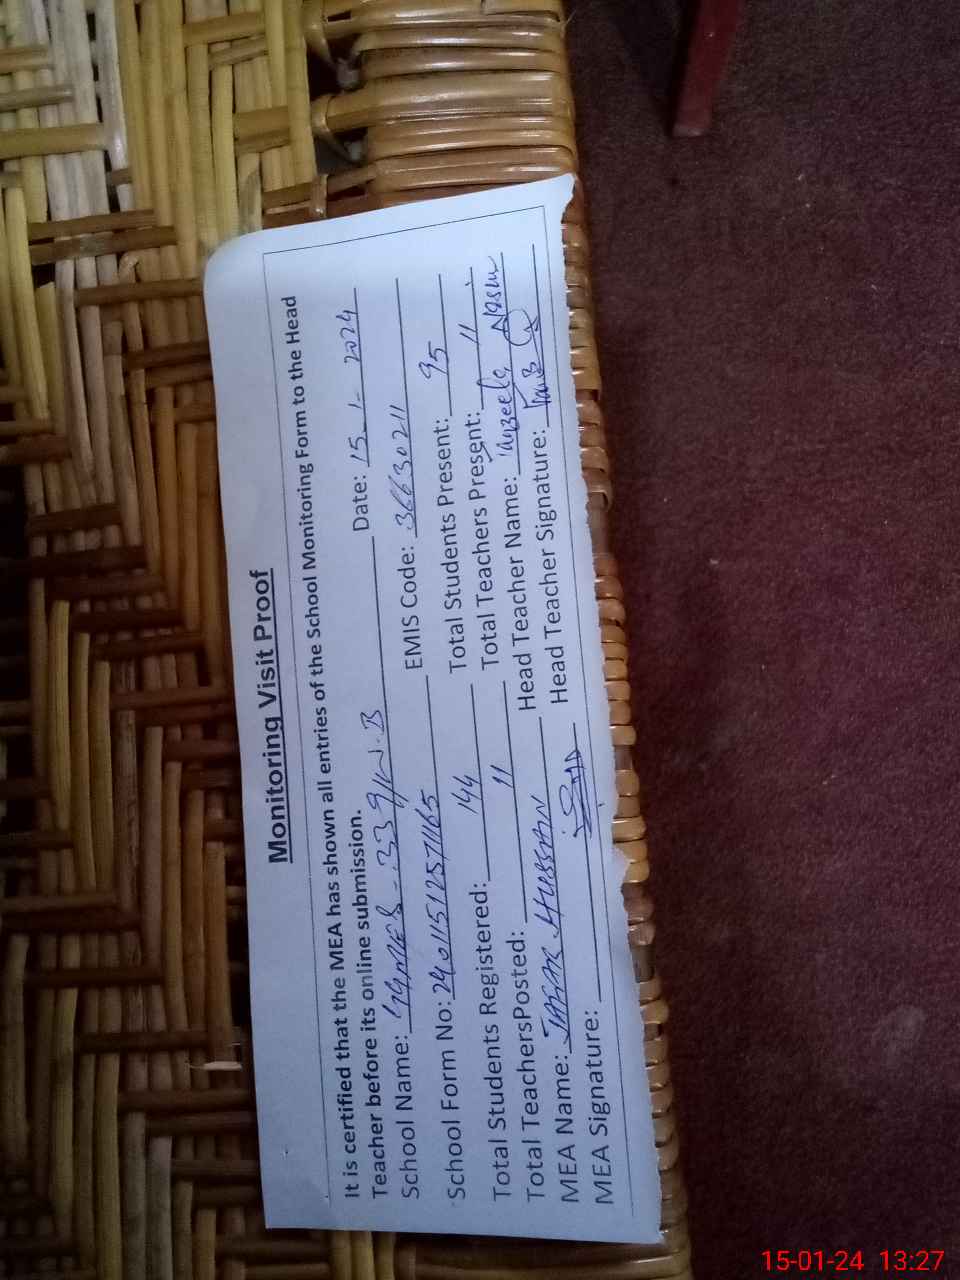 Monitoring Visit Proof
It is certified that the MEA has shown all entries of the School Monitoring Form to the Head
Teacher before its online submission.
School Name: 339/W.B Date: 15-1-2024
School Form No: 24011512571165 EMIS Code: 36630211
Total Students Registered: 144 Total Students Present: 95
Total TeachersPosted: 11 Total Teachers Present: 11
MEA Name: HUSSAIN Head Teacher Name: Tanzeela
MEA Signature: Head Teacher Signature:
15-01-24 13:27